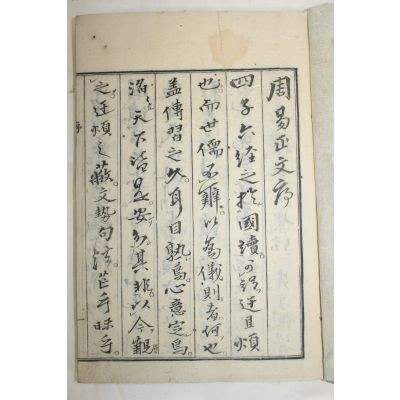 周易正文序
四子六経之於國讀可謂迂且煩
也而世儒不難以為儀則者何也
蓋傳習之久耳目熟焉心意定焉
滔〻天下皆是安知其非以今觀
之迂煩之蔽文勢句法茫乎昧乎
序